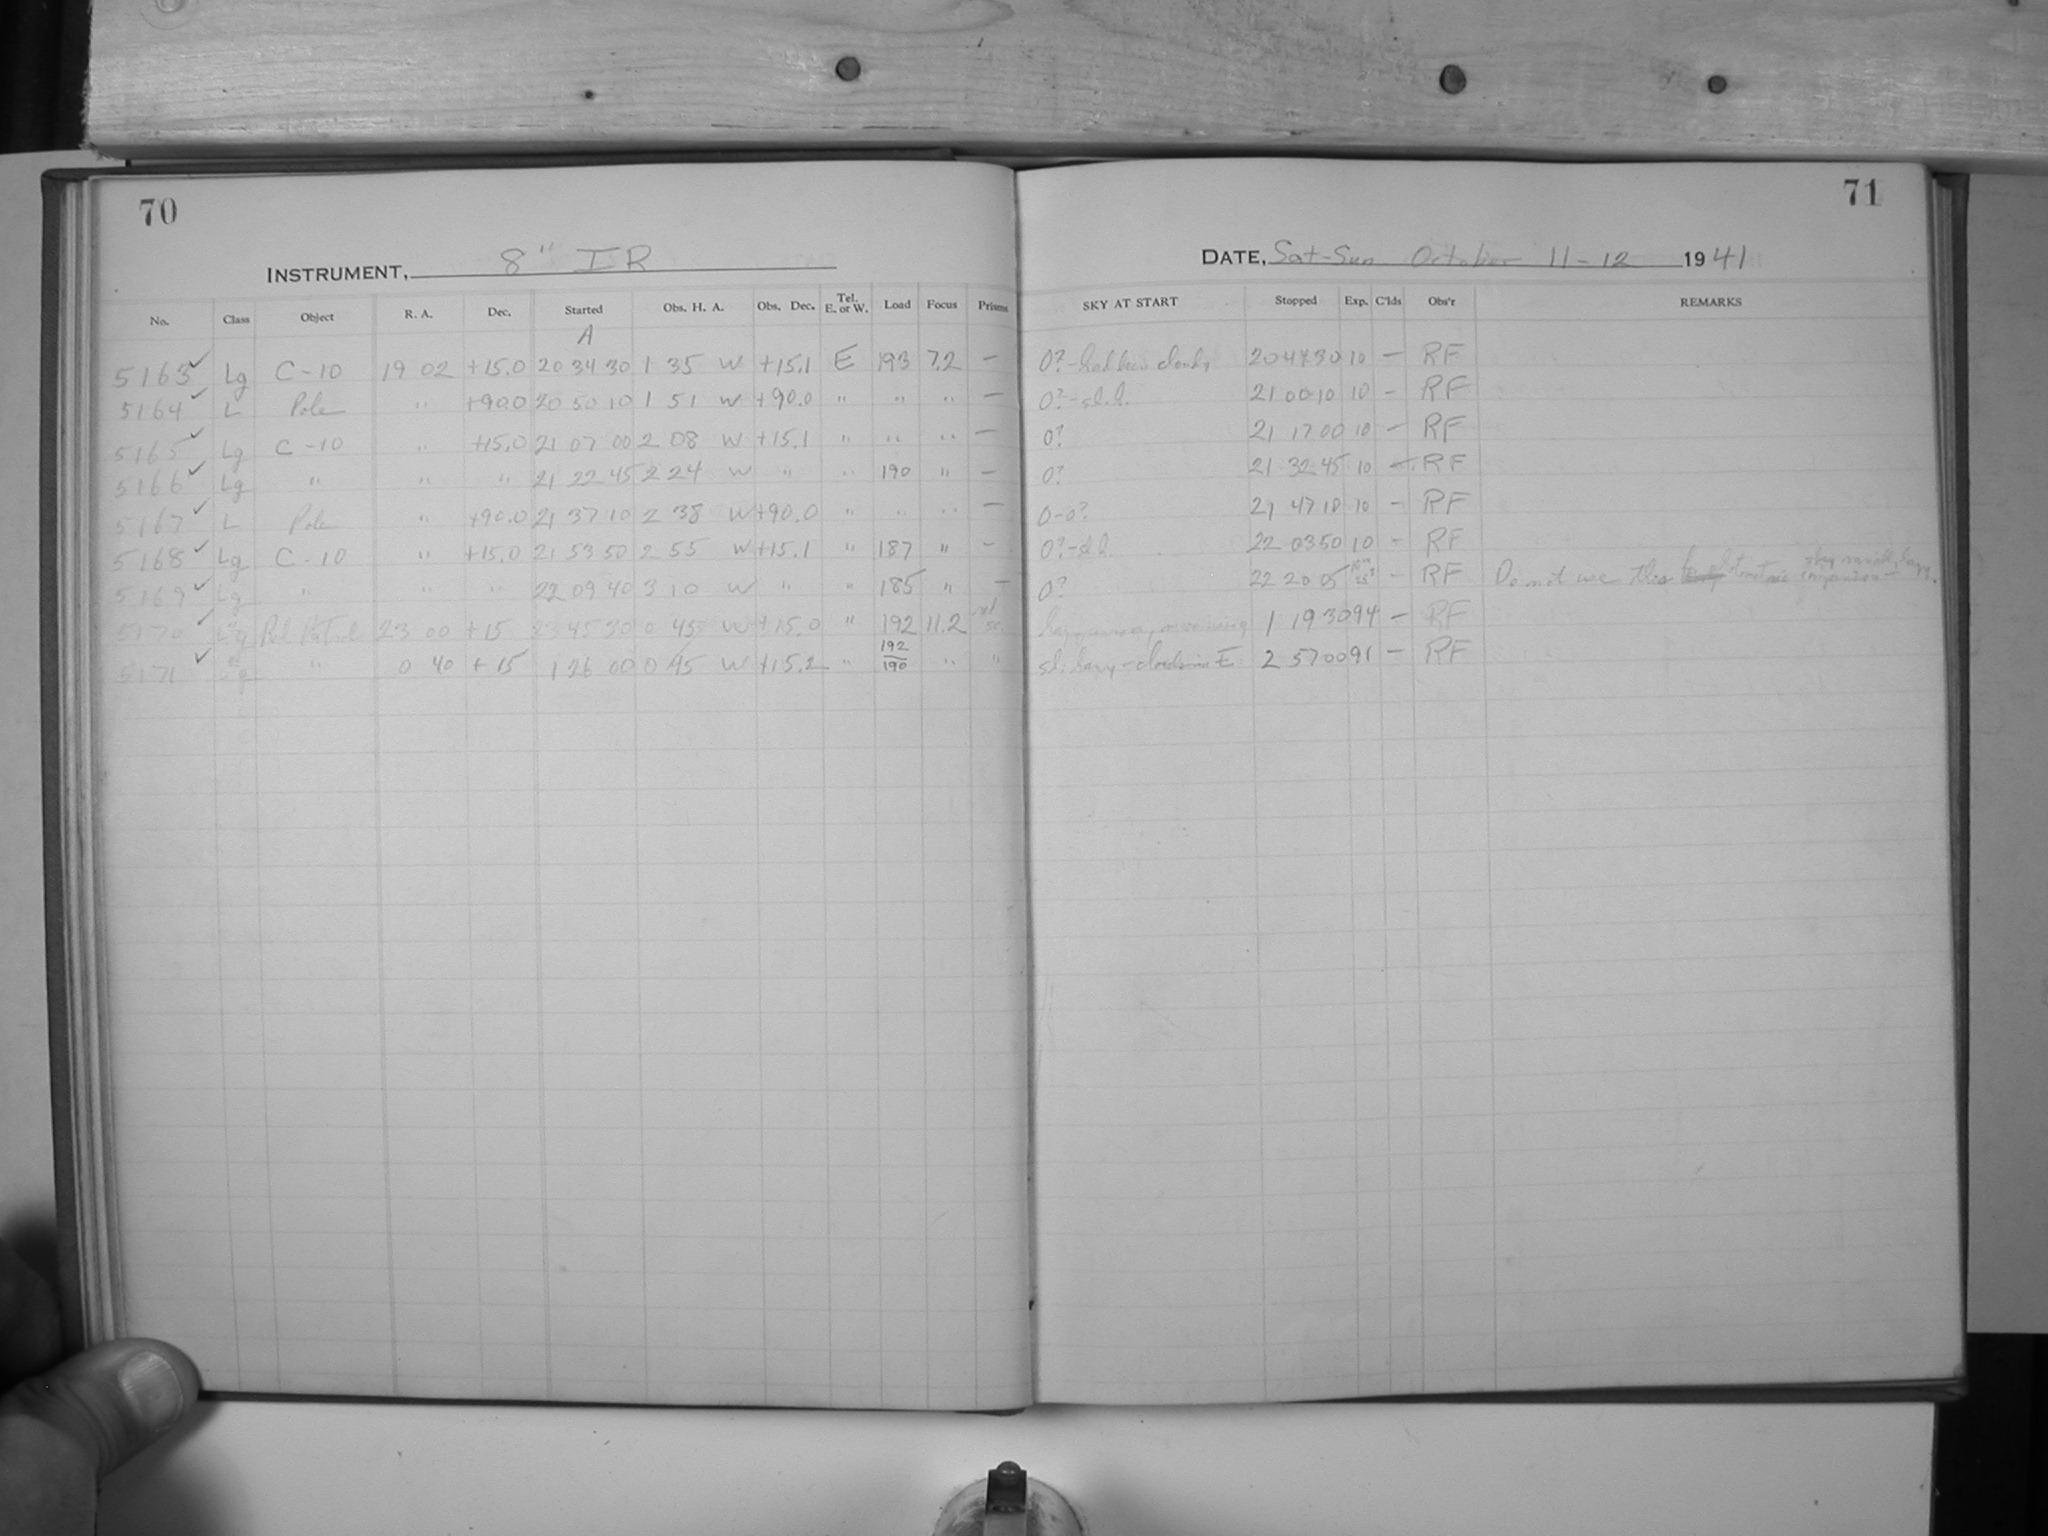 70
71
INSTRUMENT, 8" IR
DATE, Sat-Sun October 11-12 1941
No. Class Object R. A. Dec. Started Obs. H. A. Obs. Dec. Tel. E. or W. Load Focus Prisms SKY AT START Stopped Exp. C'lds Obs'r REMARKS
A
5163 ✓ Lg C-10 19 02 +15.0 20 34 30 1 35 W +15.1 E 193 7.2 — 0?- had been cloudy 20 44 30 10 — RF
5164 ✓ L Pole " +90.0 20 50 10 1 51 W +90.0 " " " — 0?-sl. h. 21 00 10 10 - RF
5165 ✓ Lg C-10 " +15.0 21 07 00 2 08 W +15.1 " " " — 0? 21 17 00 10 — RF
5166 ✓ Lg " " " 21 22 45 2 24 W " " 190 " — 0? 21 32 45 10 — RF
5167 ✓ L Pole " +90.0 21 37 10 2 38 W +90.0 " " " — 0-0? 21 47 10 10 - RF
5168 ✓ Lg C-10 " +15.0 21 53 50 2 55 W +15.1 " 187 " - 0?-sl. h. 22 03 50 10 - RF
5169 ✓ Lg " " " 22 09 40 3 10 W " " 185 " — 0? 22 20 05 - RF Do not use this photometric comparison - hazy.
5170 ✓ Pol Patrol 23 00 +15 23 45 30 0 45 W +15.0 " 192 11.2 hazy 1 19 30 94 - RF
5171 ✓ " 0 40 +15 1 26 00 0 45 W +15.2 " 192 190 " " sl. hazy - clouds in E 2 57 00 91 - RF